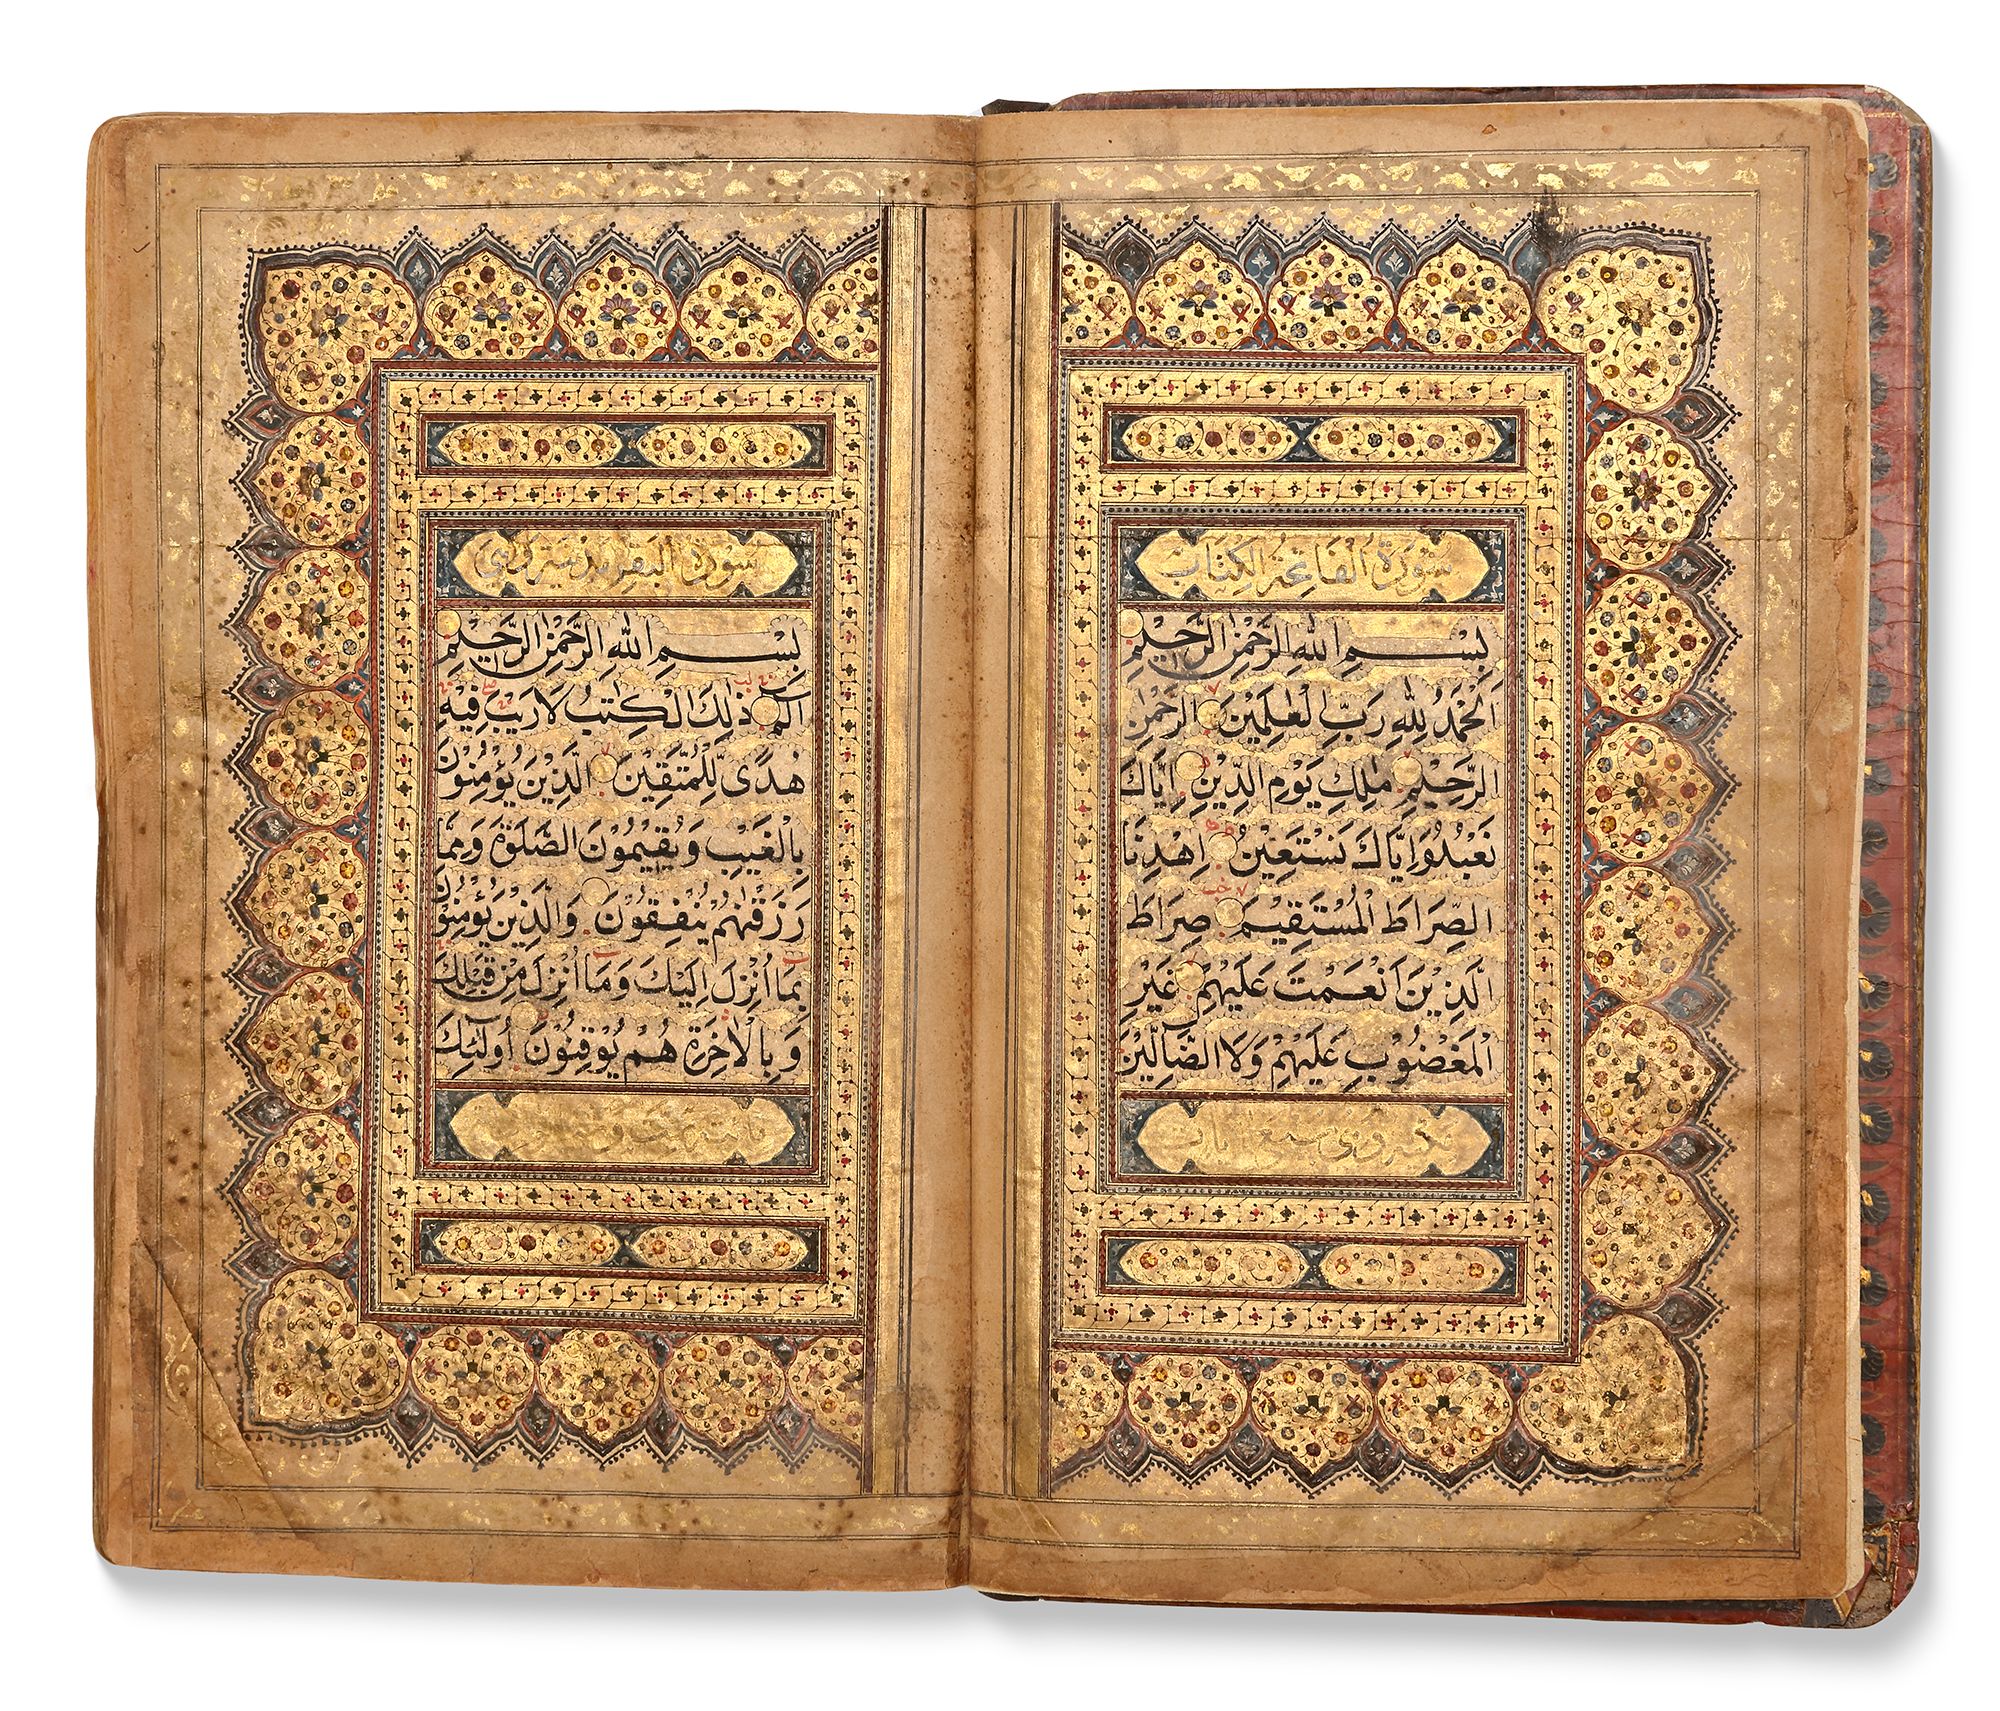 سورة الفاتحة الكتاب
بِسْمِ اللهِ الرَّحْمٰنِ الرَّحِيْمِ
اَلْحَمْدُ لِلّٰهِ رَبِّ الْعٰلَمِيْنَ الرَّحْمٰنِ
الرَّحِيْمِ مٰلِكِ يَوْمِ الدِّيْنِ اِيَّاكَ
نَعْبُدُ وَاِيَّاكَ نَسْتَعِيْنُ اِهْدِنَا
الصِّرَاطَ الْمُسْتَقِيْمَ صِرَاطَ
الَّذِيْنَ اَنْعَمْتَ عَلَيْهِمْ غَيْرِ
الْمَغْضُوْبِ عَلَيْهِمْ وَلَا الضَّالِّيْنَ
سورة البقر
بِسْمِ اللهِ الرَّحْمٰنِ الرَّحِيْمِ
الٓمّٓ ذٰلِكَ الْكِتٰبُ لَا رَيْبَ فِيْهِ
هُدًى لِّلْمُتَّقِيْنَ الَّذِيْنَ يُؤْمِنُوْنَ
بِالْغَيْبِ وَيُقِيْمُوْنَ الصَّلٰوةَ وَمِمَّا
رَزَقْنٰهُمْ يُنْفِقُوْنَ وَالَّذِيْنَ يُؤْمِنُوْنَ
بِمَا اُنْزِلَ اِلَيْكَ وَمَا اُنْزِلَ مِنْ قَبْلِكَ
وَبِالْاٰخِرَةِ هُمْ يُوْقِنُوْنَ اُولٰئِكَ